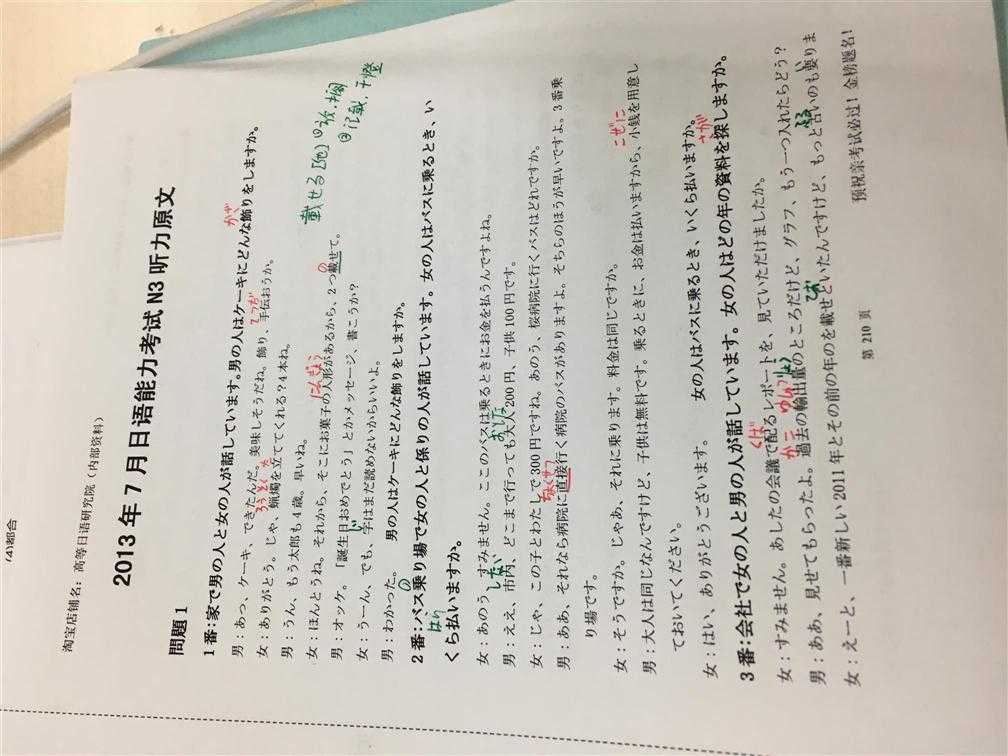 (4)都合
淘宝店铺名：高等日语研究院（内部资料）
2013 年 7 月日语能力考试 N3 听力原文
問題 1
かざ
1 番：家で男の人と女の人が話しています。男の人はケーキにどんな飾りをしますか。
男：あっ、ケーキ、できたんだ。美味しそうだね。飾り、手伝おうか。
てつだ
女：ありがとう。じゃ、蝋燭を立ててくれる？4 本ね。
ろうそく た
男：うん、もう太郎も 4 歳。早いね。
女：ほんとうね。それから、そこにお菓子の人形があるから、2 つ載せて。
にんぎょう
の
載せる [他]
男：オッケ。「誕生日おめでとう」とかメッセージ、書こうか？
女：うーん、でも、字はまだ読めないからいいよ。
じ
男：わかった。　男の人はケーキにどんな飾りをしますか。
の
2 番：バス乗り場で女の人と係りの人が話しています。女の人はバスに乗るとき、い
くら払いますか。
はら
女：あのう、すみません。ここのバスは乗るときにお金を払うんですよね。
男：ええ、市内、どこまで行っても大人 200 円、子供 100 円です。
しない
おとな
女：じゃ、この子とわたしで 300 円ですね。あのう、桜病院に行くバスはどれですか。
男：ああ、それなら病院に直接行く病院のバスがありますよ。そちのほうが早いですよ。3 番乗
ちょくせつ
り場です。
女：そうですか。じゃあ、それに乗ります。料金は同じですか。
男：大人は同じなんですけど、子供は無料です。乗るときに、お金は払いますから、小銭を用意し
こぜに
ておいてください。
女：はい、ありがとうございます。　女の人はバスに乗るとき、いくら払いますか。
さが
3 番：会社で女の人と男の人が話しています。女の人はどの年の資料を探しますか。
女：すみません。あしたの会議で配るレポートを、見ていただけましたか。
くば
男：ああ、見せてもらったよ。過去の輸出量のところだけど、グラフ、もう一つ入れたらどう？
かこ ゆしゅつりょう
女：えーと、一番新しい 2011 年とその前の年のを載せといたんですけど、もっと古いのも要りま
第 210 页
预祝亲考试必过！金榜题名！